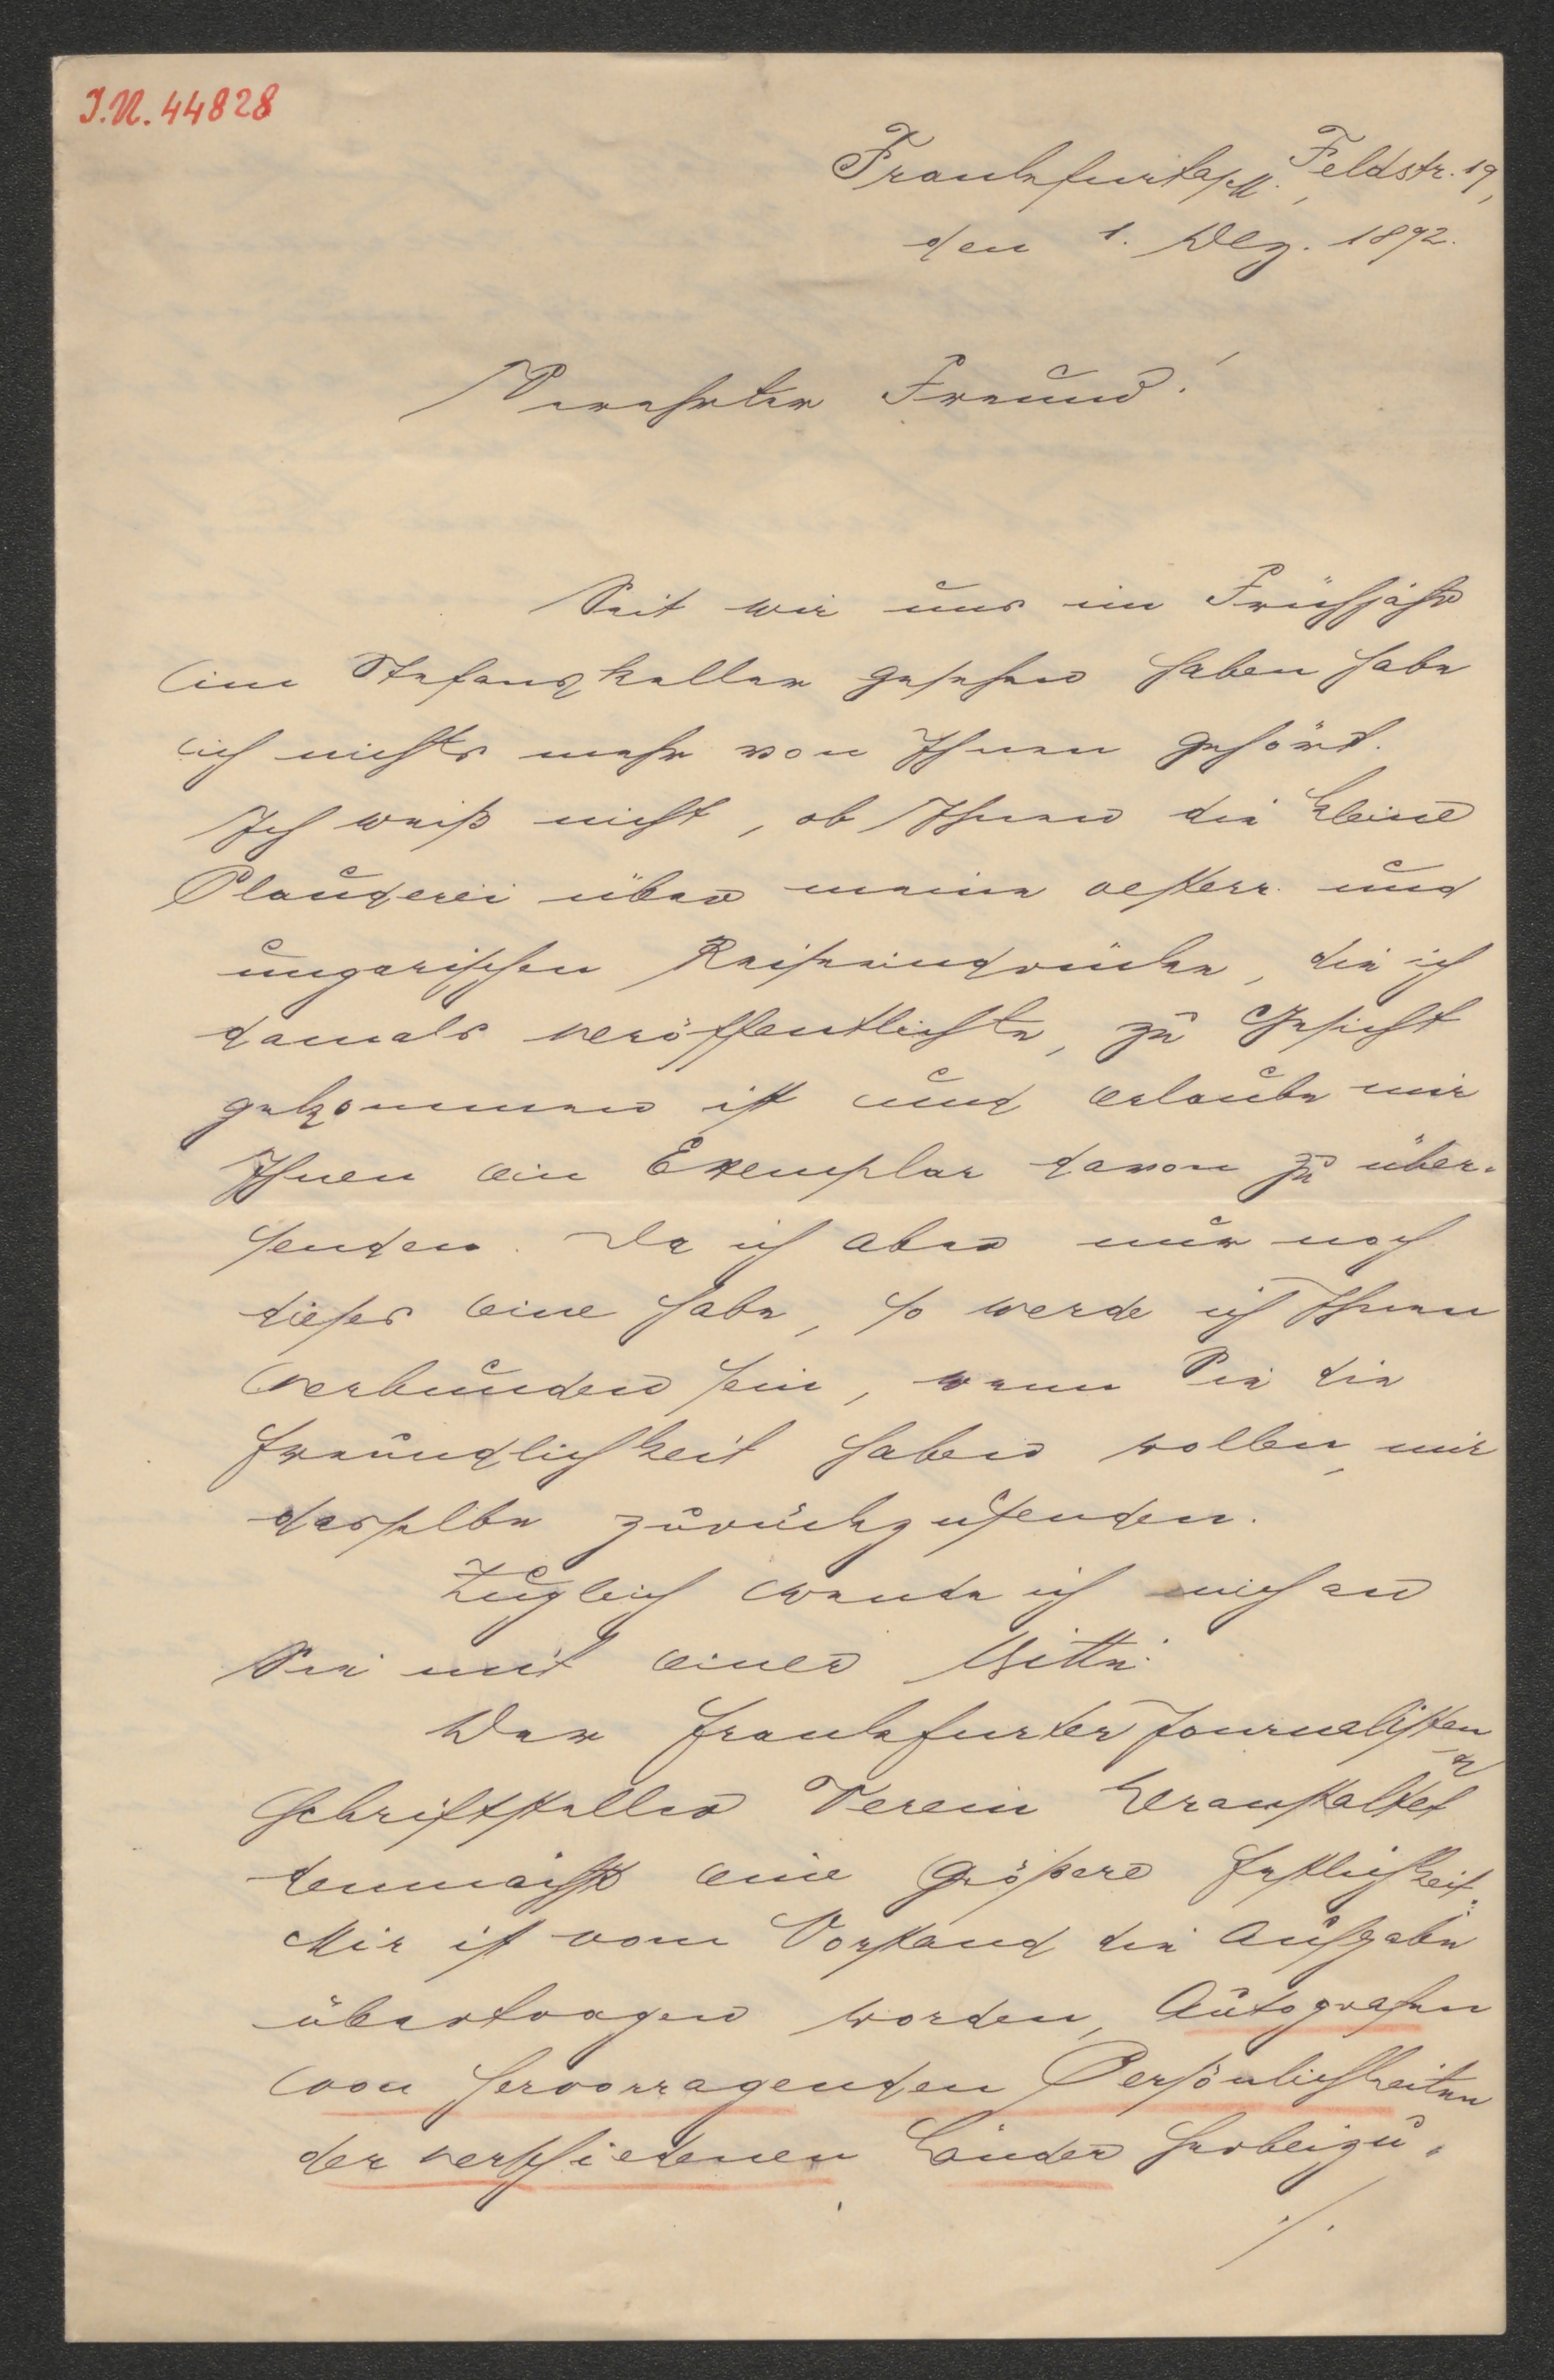 I.N. 44828
Frankfurt a/M., Feldstr. 19,
den 1. Dez. 1892.
Verehrter Freund!
Seit wir uns im Frühjahr
im Stefanskeller gesehen haben habe
ich nichts mehr von Ihnen gehört.
Ich weiß nicht, ob Ihnen die kleine
Plauderei über meine oesterr. und
ungarischen Reiseeindrücke, die ich
damals veröffentlichte, zu Gesicht
gekommen ist und erlaube mir
Ihnen ein Exemplar davon zu über-
senden. Da ich aber nur noch
dieses eine habe, so werde ich Ihnen
verbunden sein, wenn Sie die
Freundlichkeit haben wollen, mir
dasselbe zurückzusenden.
Zugleich wende ich mich an
Sie mit einer Bitte.
Der Frankfurter Journalisten-
& Schriftsteller Verein veranstaltet
demnächst eine größere Festlichkeit.
Mir ist vom Vorstand die Aufgabe
übertragen worden, Autografen
von hervorragenden Persönlichkeiten
der verschiedenen Länder herbeizu-
./.